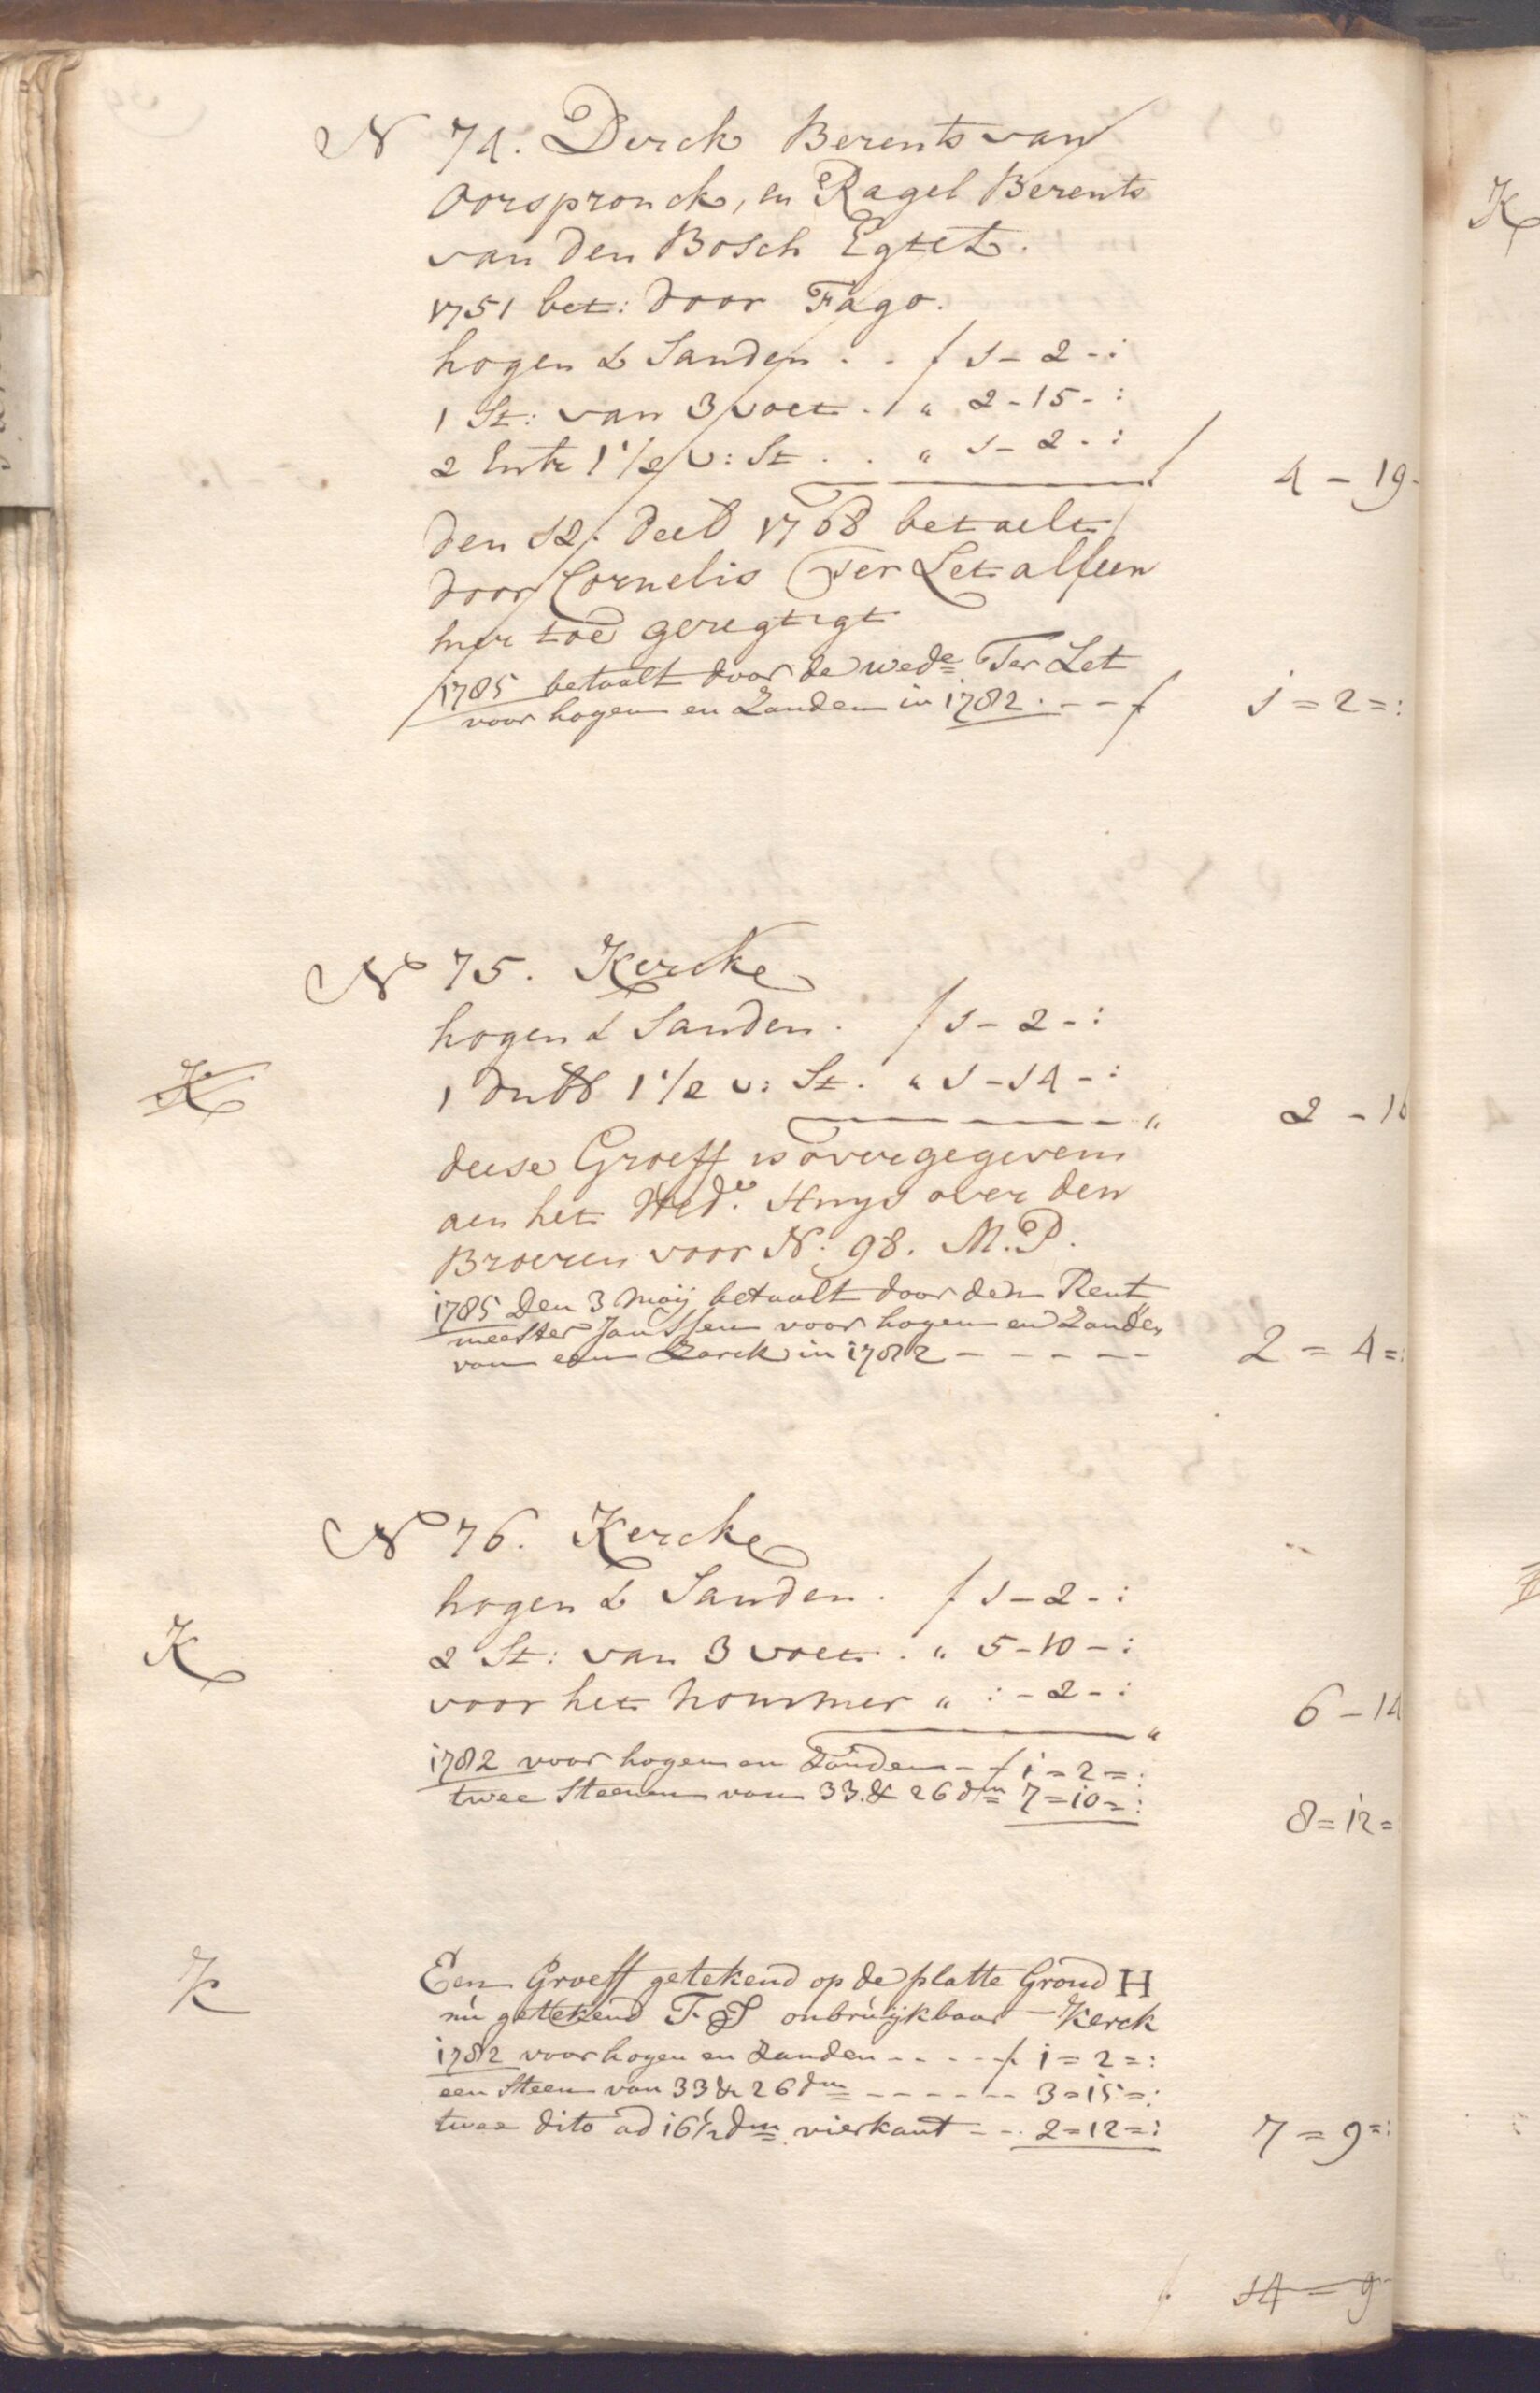 N 74. Derck Berents van
Oorspronck, en Ragel Berents
van den Bosch Egtet.
1751 bet: door Fago.
hogen & Sanden . . f 1 - 2 - :
1 St: van 3 voet . " 2 - 15 - :
2 1 1/2 v: St . . " 1 - 2 - :
4 - 19 -
den 12. 1768 betaelt
door Cornelis Ter Let alleen
hier toe geregtigt
1785 betaalt door de wede Ter Let
voor hogen en Zanden in 1782 . - - f 1 = 2 = :
N 75. Kercke
hogen & Sanden . f 1 - 2 - :
K
1 dubb 1 1/2 v: St. " 1 - 14 - :
" 2 - 16
deese Groeff is overgegeven
aen het Wed. Huys over den
Broeren voor N: 98. M.P.
1785 Den 3 Maij betaalt door den Rent
meester Janssen voor hogen en Zanden
van een Zarck in 1782 - - - - - 2 = 4 = :
N 76. Kercke
hogen & Sanden . f 1 - 2 - :
K
2 St: van 3 voet . " 5 - 10 - :
voor het nommer " : - 2 - :
" 6 - 14
1782 voor hogen en Zanden - - f 1 = 2 = :
twee Steenen van 33 & 26 dm 7 = 10 = :
8 = 12 =
K
Een Groeff getekend op de platte Grond H
nú getekend F. S onbrúijkbaar - Kerck
1782 voor hogen en Zanden - - - - f 1 = 2 = :
een Steen van 33 & 26 dm - - - - - - 3 = 15 = :
twee dito ad 16 1/2 dm vierkant - - 2 = 12 = : 7 = 9 = :
f 14 = 9 -
K